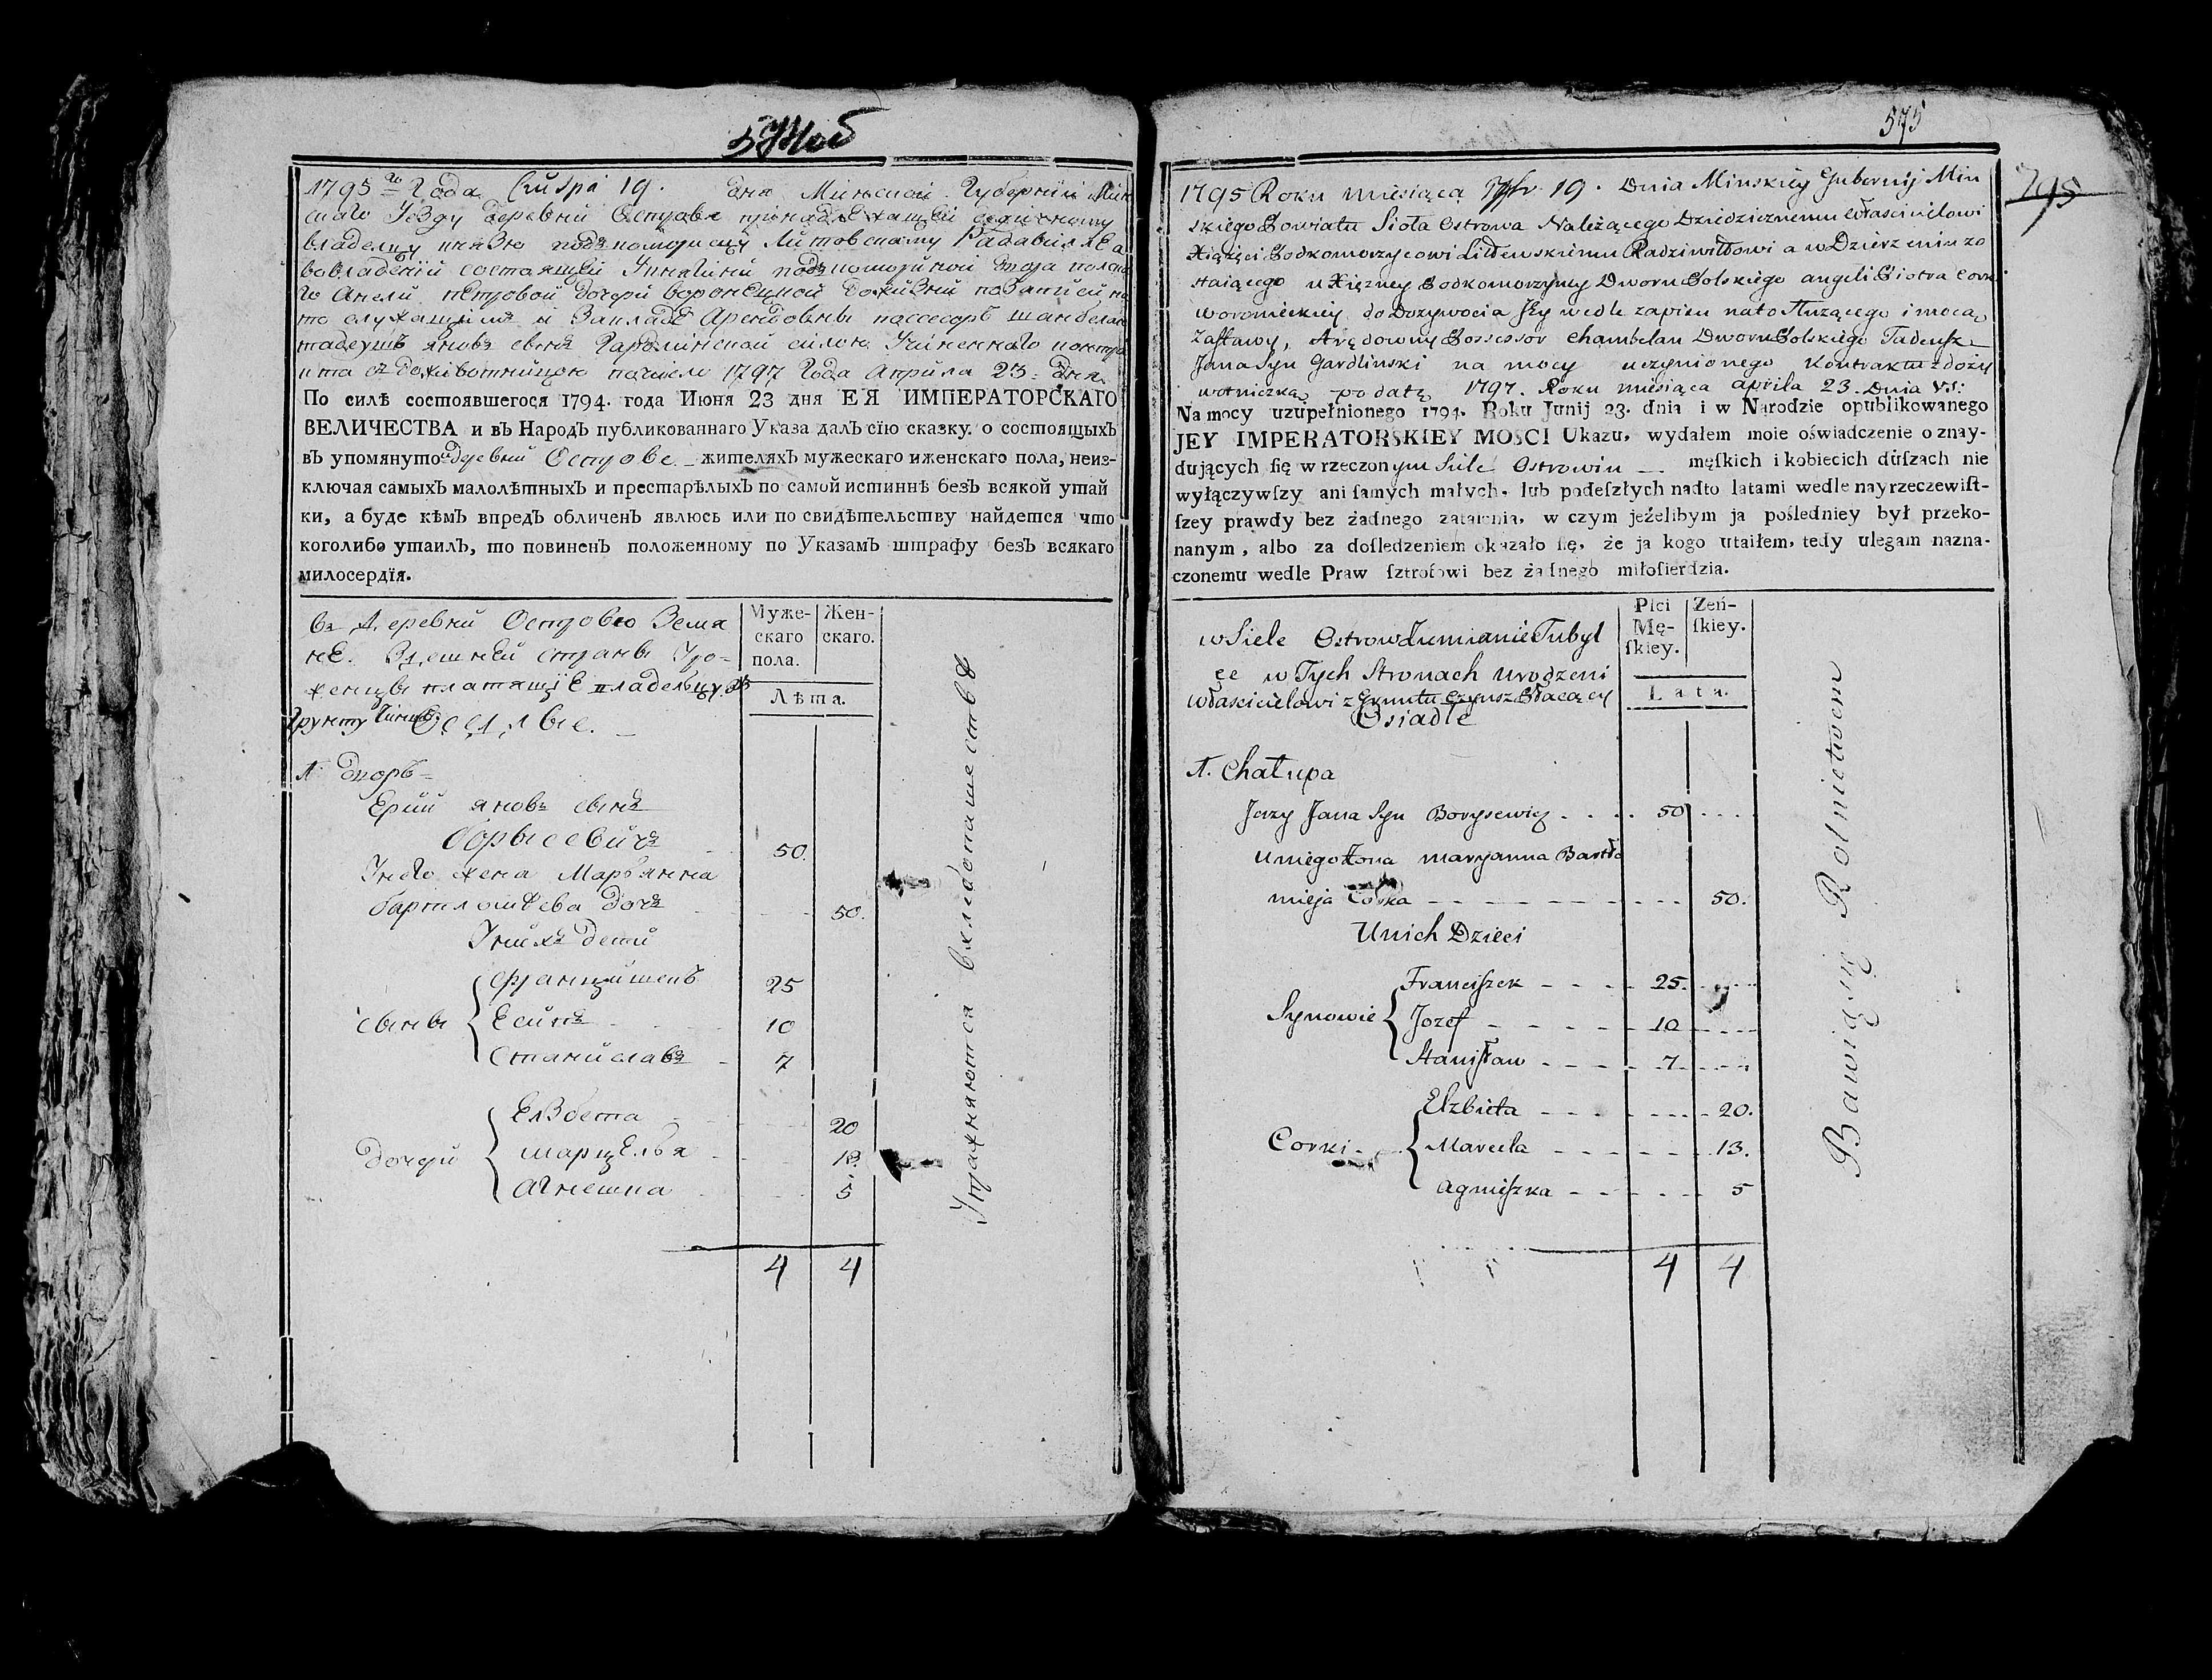 1795 го Года 19. дня Минской Губернии Мин
скаго Уезду деревни Острова принадлежащей
владельцу князю подкоморему Литовскому
во владении состоящей
го Анели Петровой дочери
1797 Года Априла 23. дня
По силѣ состоявшегося 1794. года Июня 23 дня ЕЯ ИМПЕРАТОРСКАГО
ВЕЛИЧЕСТВА и въ Народъ публикованнаго Указа далъ сїю сказку о состоящыхъ
въ упомянутой деревни Острове жителяхъ мужескаго иженскаго пола, неиз-
ключая самыхъ малолѣтныхъ и престарѣлыхъ по самой истиннѣ безъ всякой утай
ки, а буде кѣмъ впредъ обличенъ явлюсь или по свидѣтельству найдется что
коголибо утаилъ, то повиненъ положенному по Указамъ штрафу безъ всякаго
милосердїя.
Муже-
скаго
пола.
Жен-
скаго.
Лѣта.
въ Деревни Острово Земя
не. Здешней страны Уро-
женцы платящіе владельцу
грунту чиншъ
Оселые.
1. дворъ
Ерий яновъ сынъ
Борысевичъ 50.
У него жена Марьянна
бартломѣева дочь 50.
У нихъ дети
сыны
Францишекъ 25
Есипъ 10
Станиславъ 7
дочери
Елзбета 20
марцелья 13.
агнешка 5
4 4
Упражняются в хлебопашестве
575
795
1795 Roku miesiąca 7bra 19. Dnia Minskiey Gubernij Min
skiego Powiatu Sioła Ostrowa Należącego Dziedzicznemu Włascicielowi
Xiążęci Podkomorzycowi Litewskiemu Radziwiłłowi a w Dzierzeniu zo
staiącego u Xiężney Podkomorzyney Dworu Polskiego angeli Piotra Cork
woronieckiey do Dozywocia Jey wedle zapisu na to służącego i mocą
Zastawy, Arędowny Possessor Chambelan Dworu Polskiego Tadeusz
Jana Syn Gardlinski na mocy uczynionego Kontraktu z dozy
wotniczką pod datą 1797. Roku miesiąca aprila 23. Dnia v.s.
Na mocy uzupełnionego 1794. Roku Junij 23. dnia i w Narodzie opublikowanego
JEY IMPERATORSKIEY MOSCI Ukazu, wydałem moie oświadczenie o znay-
dujących ſię w rzeczonym Siele Ostrowiu męſkich i kobiecich duſzach nie
wyłączywſzy ani ſamych małych, lub podeſzłych nadto latami wedle nayrzeczewiſt-
ſzey prawdy bez żadnego zataienia, w czym jeżelibym ja pośledniey był przeko-
nanym, albo za dofledzeniem okazało ſię, że ja kogo utaiłem, tedy ulegam nazna-
czonemu wedle Praw ſztrofowi bez żadnego miłoſierdzia.
Płci
Mę-
ſkiey.
Zeń-
ſkiey.
Lata.
w Siele Ostrow Ziemianie Tubyl
ce w Tych Stronach urodzeni
Włascicielowi z Gruntu Czynsz Płacący
Osiadłe
1. Chałupa
Jerzy Jana Syn Borysewicz 50
U niego Zona maryanna Bartło
mieja Corka 50.
U nich Dzieci
Synowie
Franciſzek 25.
Jozef 10
Staniſław 7
Corki
Elzbieta 20.
Marcela 13.
agniſzka 5
4 4
Bawią się Rolnictwem